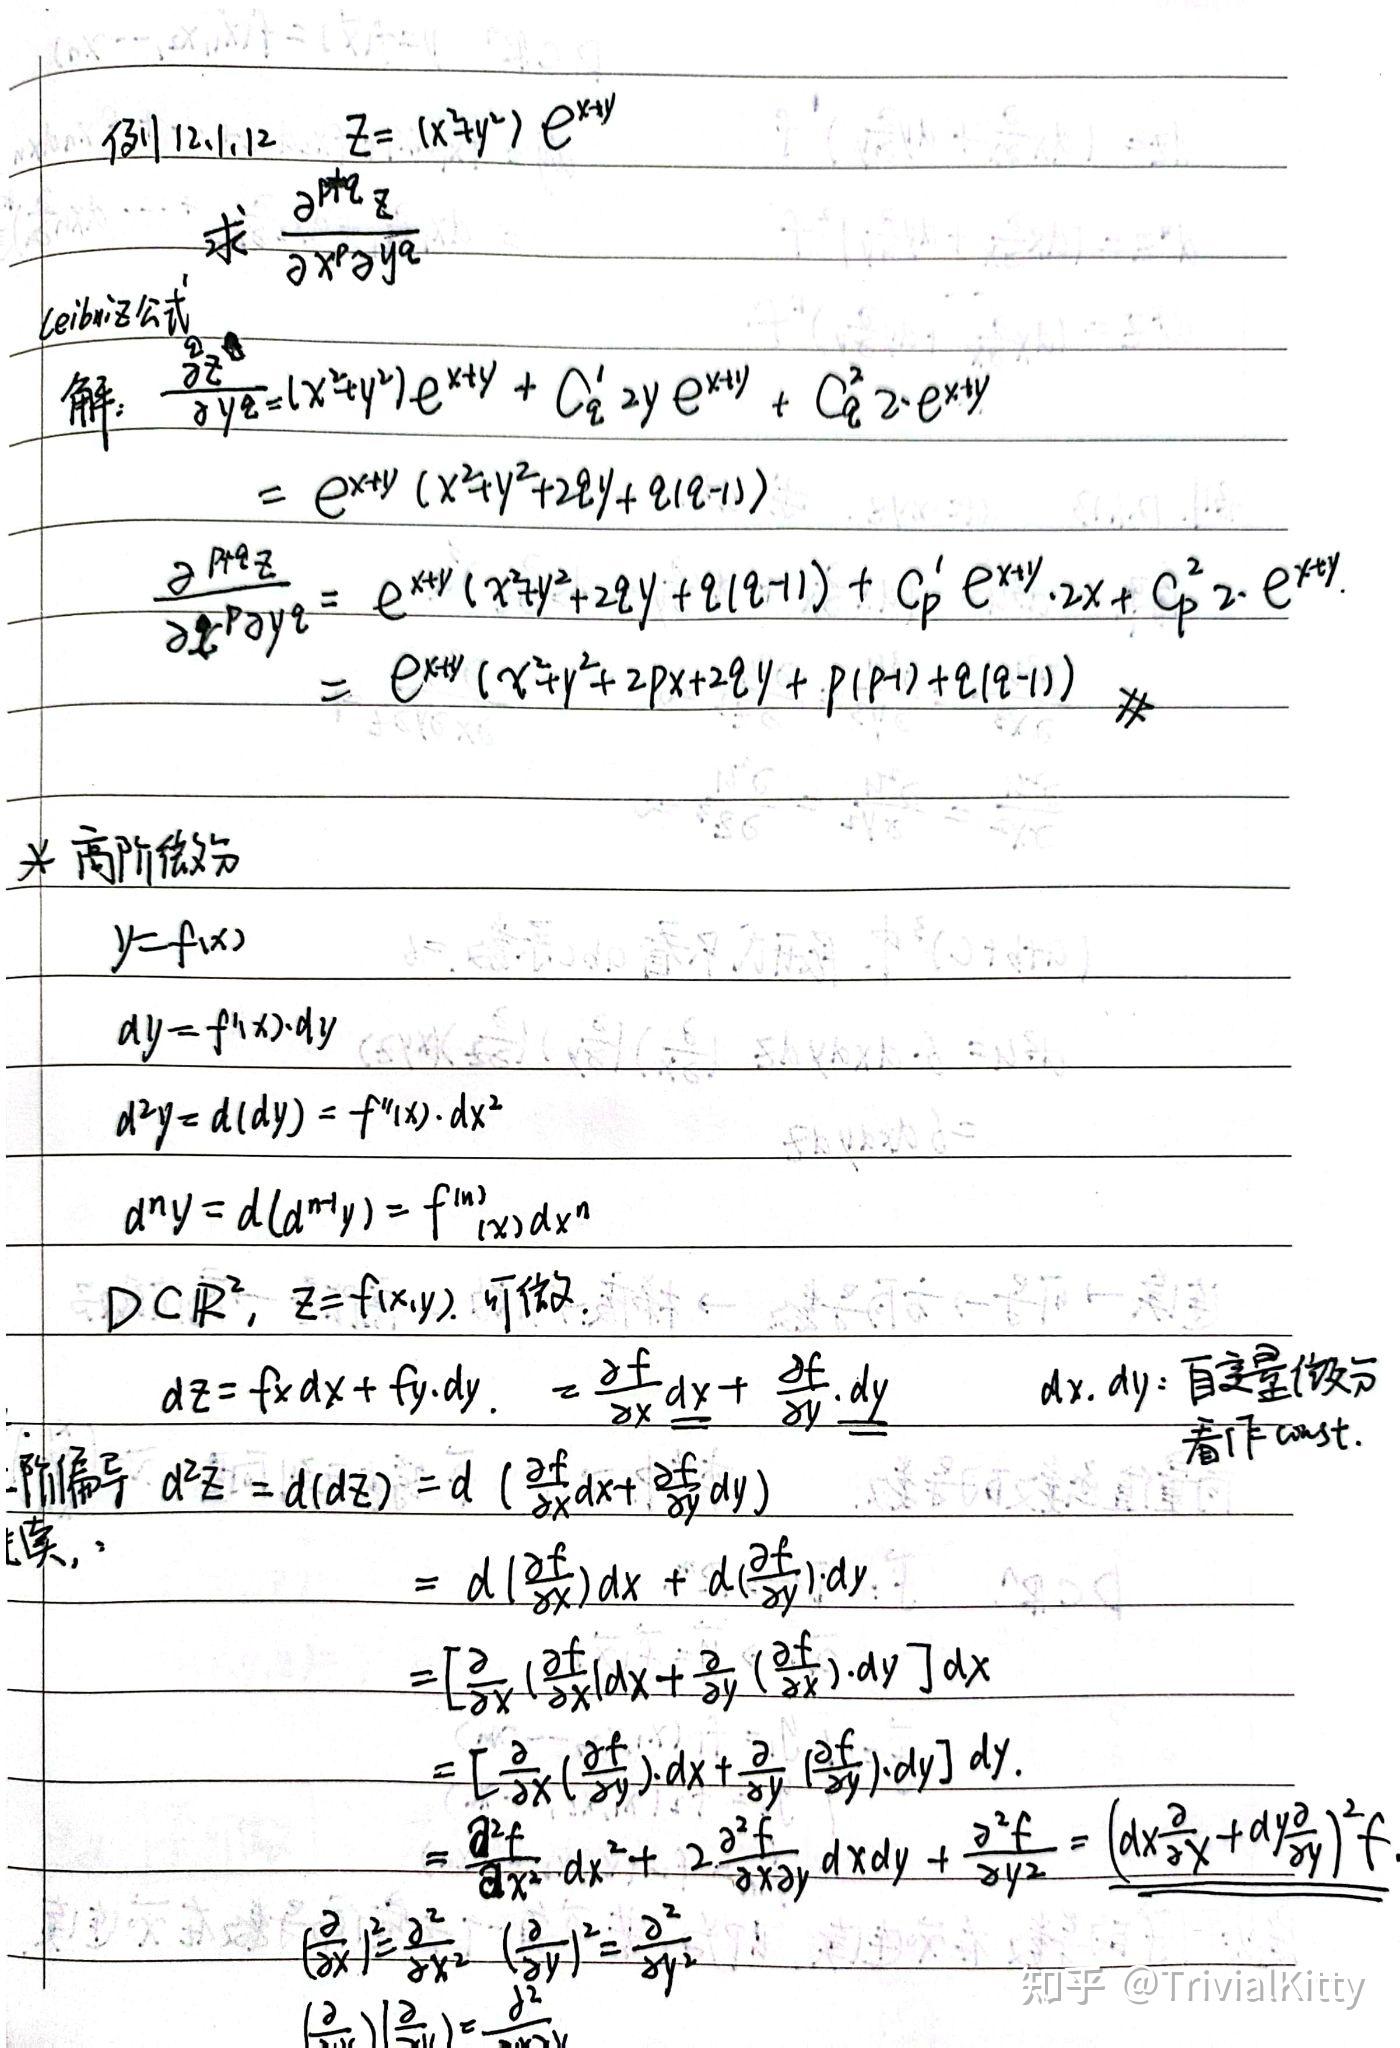 例12.1.12 z=(x²+y²) e^{x+y}
求 ∂^{p+q}z/∂x^p∂y^q
Leibniz公式
解: ∂^q z/∂y^q=(x²+y²)e^{x+y} + C_q^1 2y e^{x+y} + C_q^2 2·e^{x+y}
= e^{x+y} (x²+y²+2qy+q(q-1))
∂^{p+q}z/∂x^p∂y^q = e^{x+y} (x²+y²+2qy+q(q-1)) + C_p^1 e^{x+y}·2x + C_p^2 2·e^{x+y}.
= e^{x+y} (x²+y²+2px+2qy+p(p-1)+q(q-1)) #
* 高阶微分
y=f(x)
dy=f'(x)·dy
d²y=d(dy)=f''(x)·dx²
dⁿy=d(d^{n-1}y)=f^{(n)}(x)dxⁿ
D⊂ℝ², z=f(x,y). 可微.
dz=fxdx+fy·dy. =∂f/∂x dx+ ∂f/∂y·dy dx. dy: 自变量微分
看作const.
阶偏导 d²z =d(dz) =d (∂f/∂x dx+∂f/∂y dy)
续,:
= d(∂f/∂x)dx + d(∂f/∂y)·dy
=[∂/∂x(∂f/∂x)dx+∂/∂y(∂f/∂x)·dy]dx
=[∂/∂x(∂f/∂y)·dx+∂/∂y(∂f/∂y)·dy]dy.
=∂²f/∂x²·dx²+ 2·∂²f/∂x∂y dxdy + ∂²f/∂y² =(dx ∂/∂x+dy ∂/∂y)²f.
(∂/∂x)²=∂²/∂x² (∂/∂y)²=∂²/∂y²
知乎 @TrivialKitty